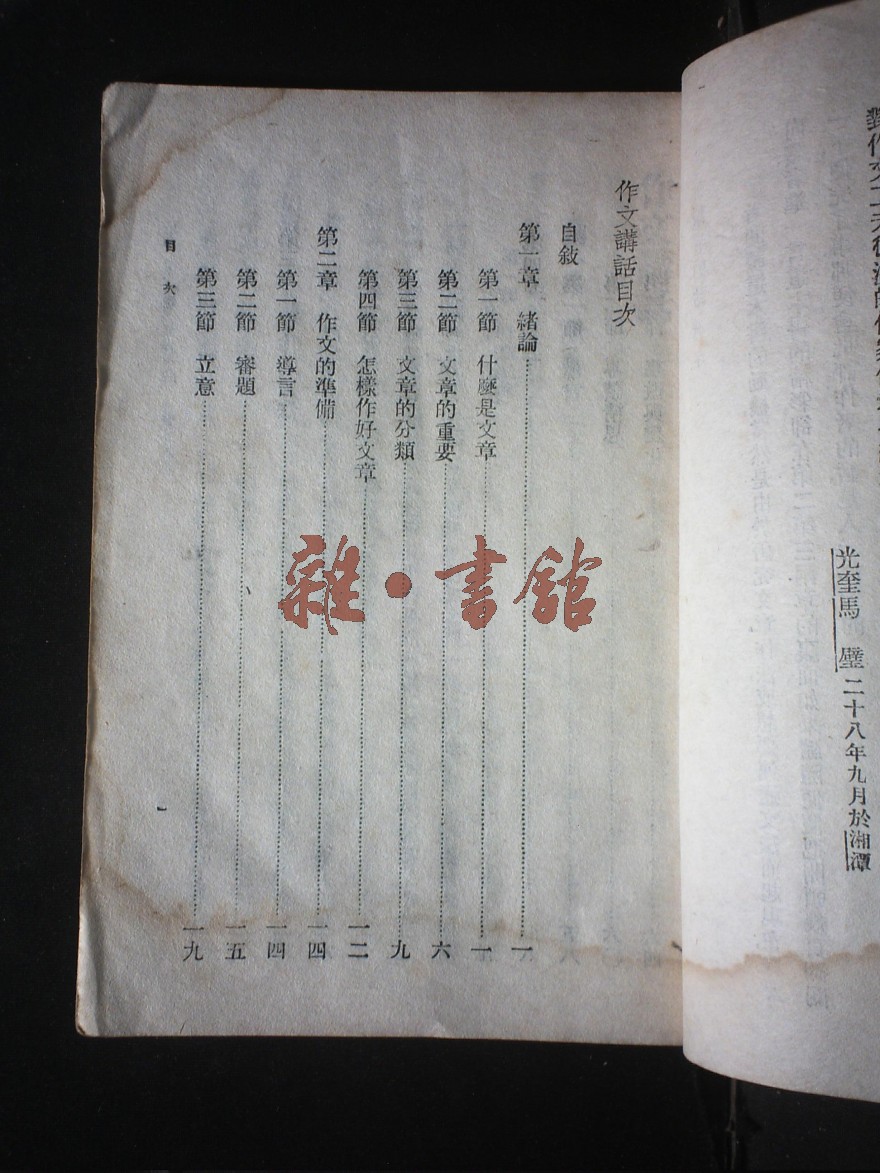 光奎馬　璧二十八年九月於湘潭
作文講話目次
自敍
第一章　緒論……一
第一節　什麼是文章……一
第二節　文章的重要……六
第三節　文章的分類……九
第四節　怎樣作好文章……一二
第二章　作文的準備……一四
第一節　導言……一四
第二節　審題……一五
第三節　立意……一九
目次
一
雜·書館